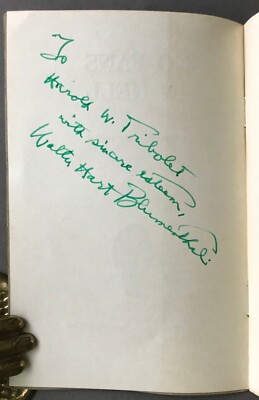 To
Harold W. Tribolet
with sincere esteem,
Walter Hart Blumenthal.